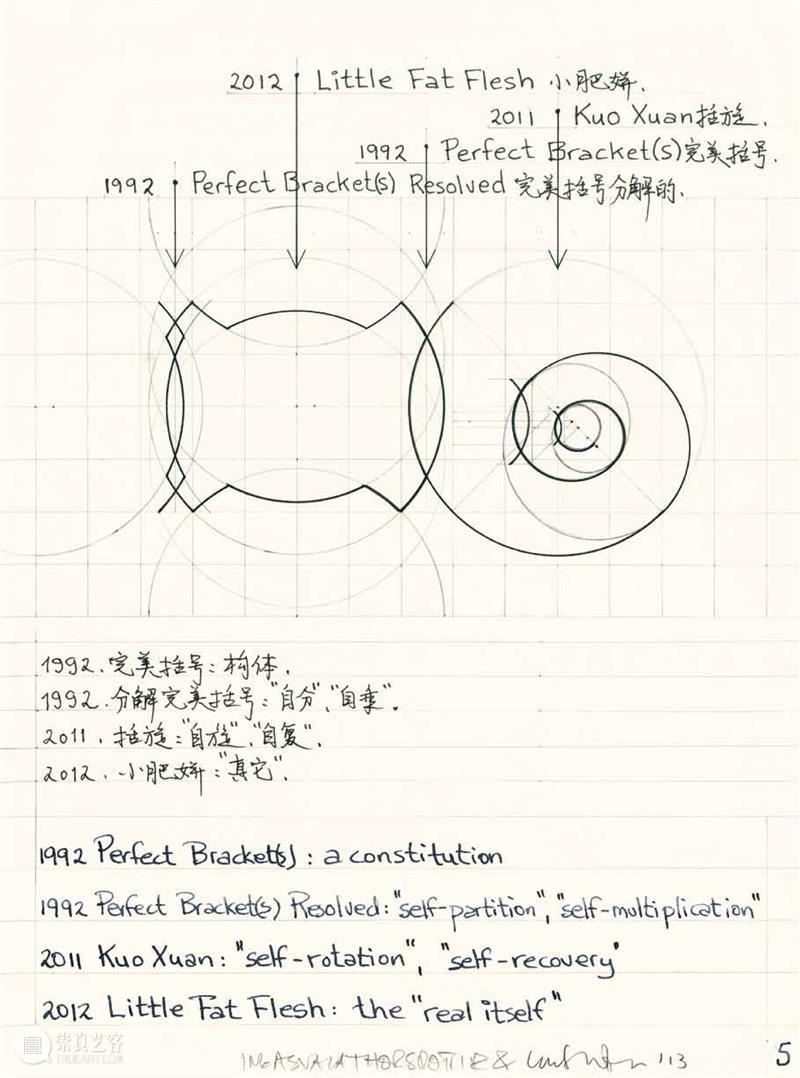 2012 Little Fat Flesh 小肥姘.
2011 Kuo Xuan 括旋.
1992 Perfect Bracket(s) 完美括号.
1992 Perfect Bracket(s) Resolved 完美括号分解的.
1992. 完美括号: 构体.
1992. 分解完美括号: "自分", "自乘".
2011. 括旋: "自旋", "自复".
2012. 小肥姘: "真它".
1992 Perfect Bracket(s): a constitution
1992 Perfect Bracket(s) Resolved: "self-partition", "self-multiplication"
2011 Kuo Xuan: "self-rotation", "self-recovery"
2012 Little Fat Flesh: the "real itself"
'13
5
崇真艺客
TRUEART.COM